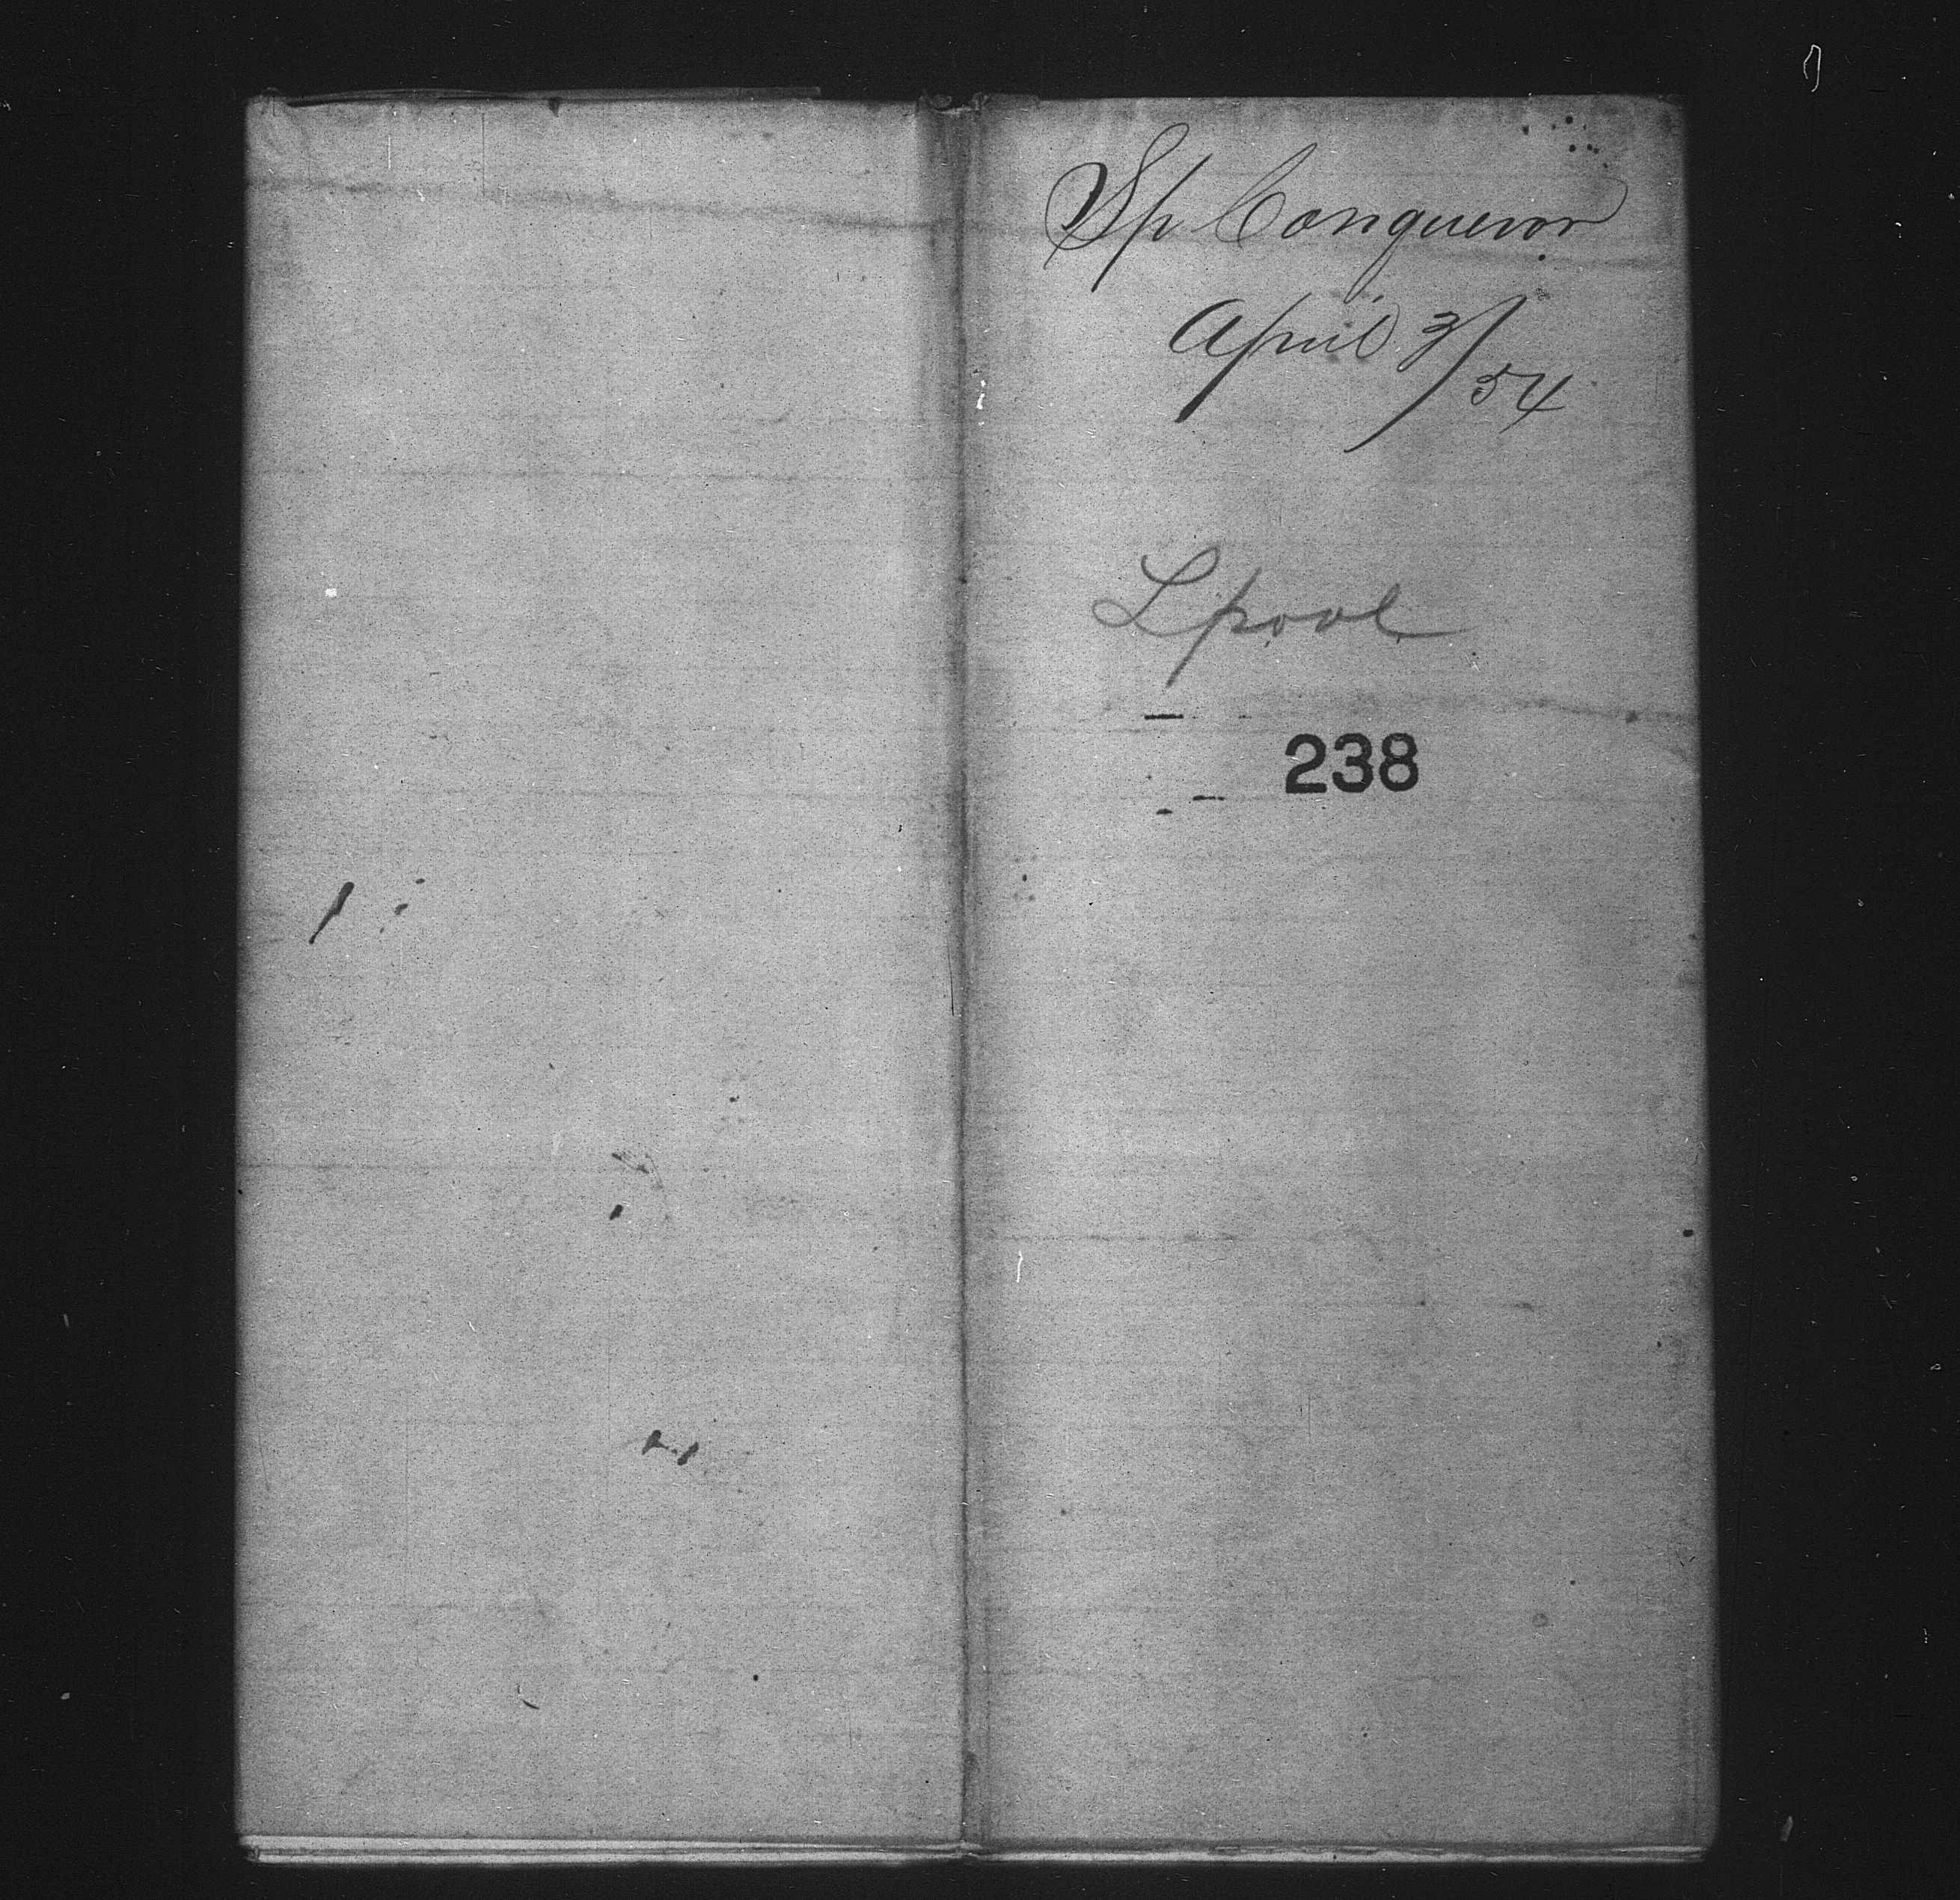 Sp Conqueror
April 3/54
Lpool
238